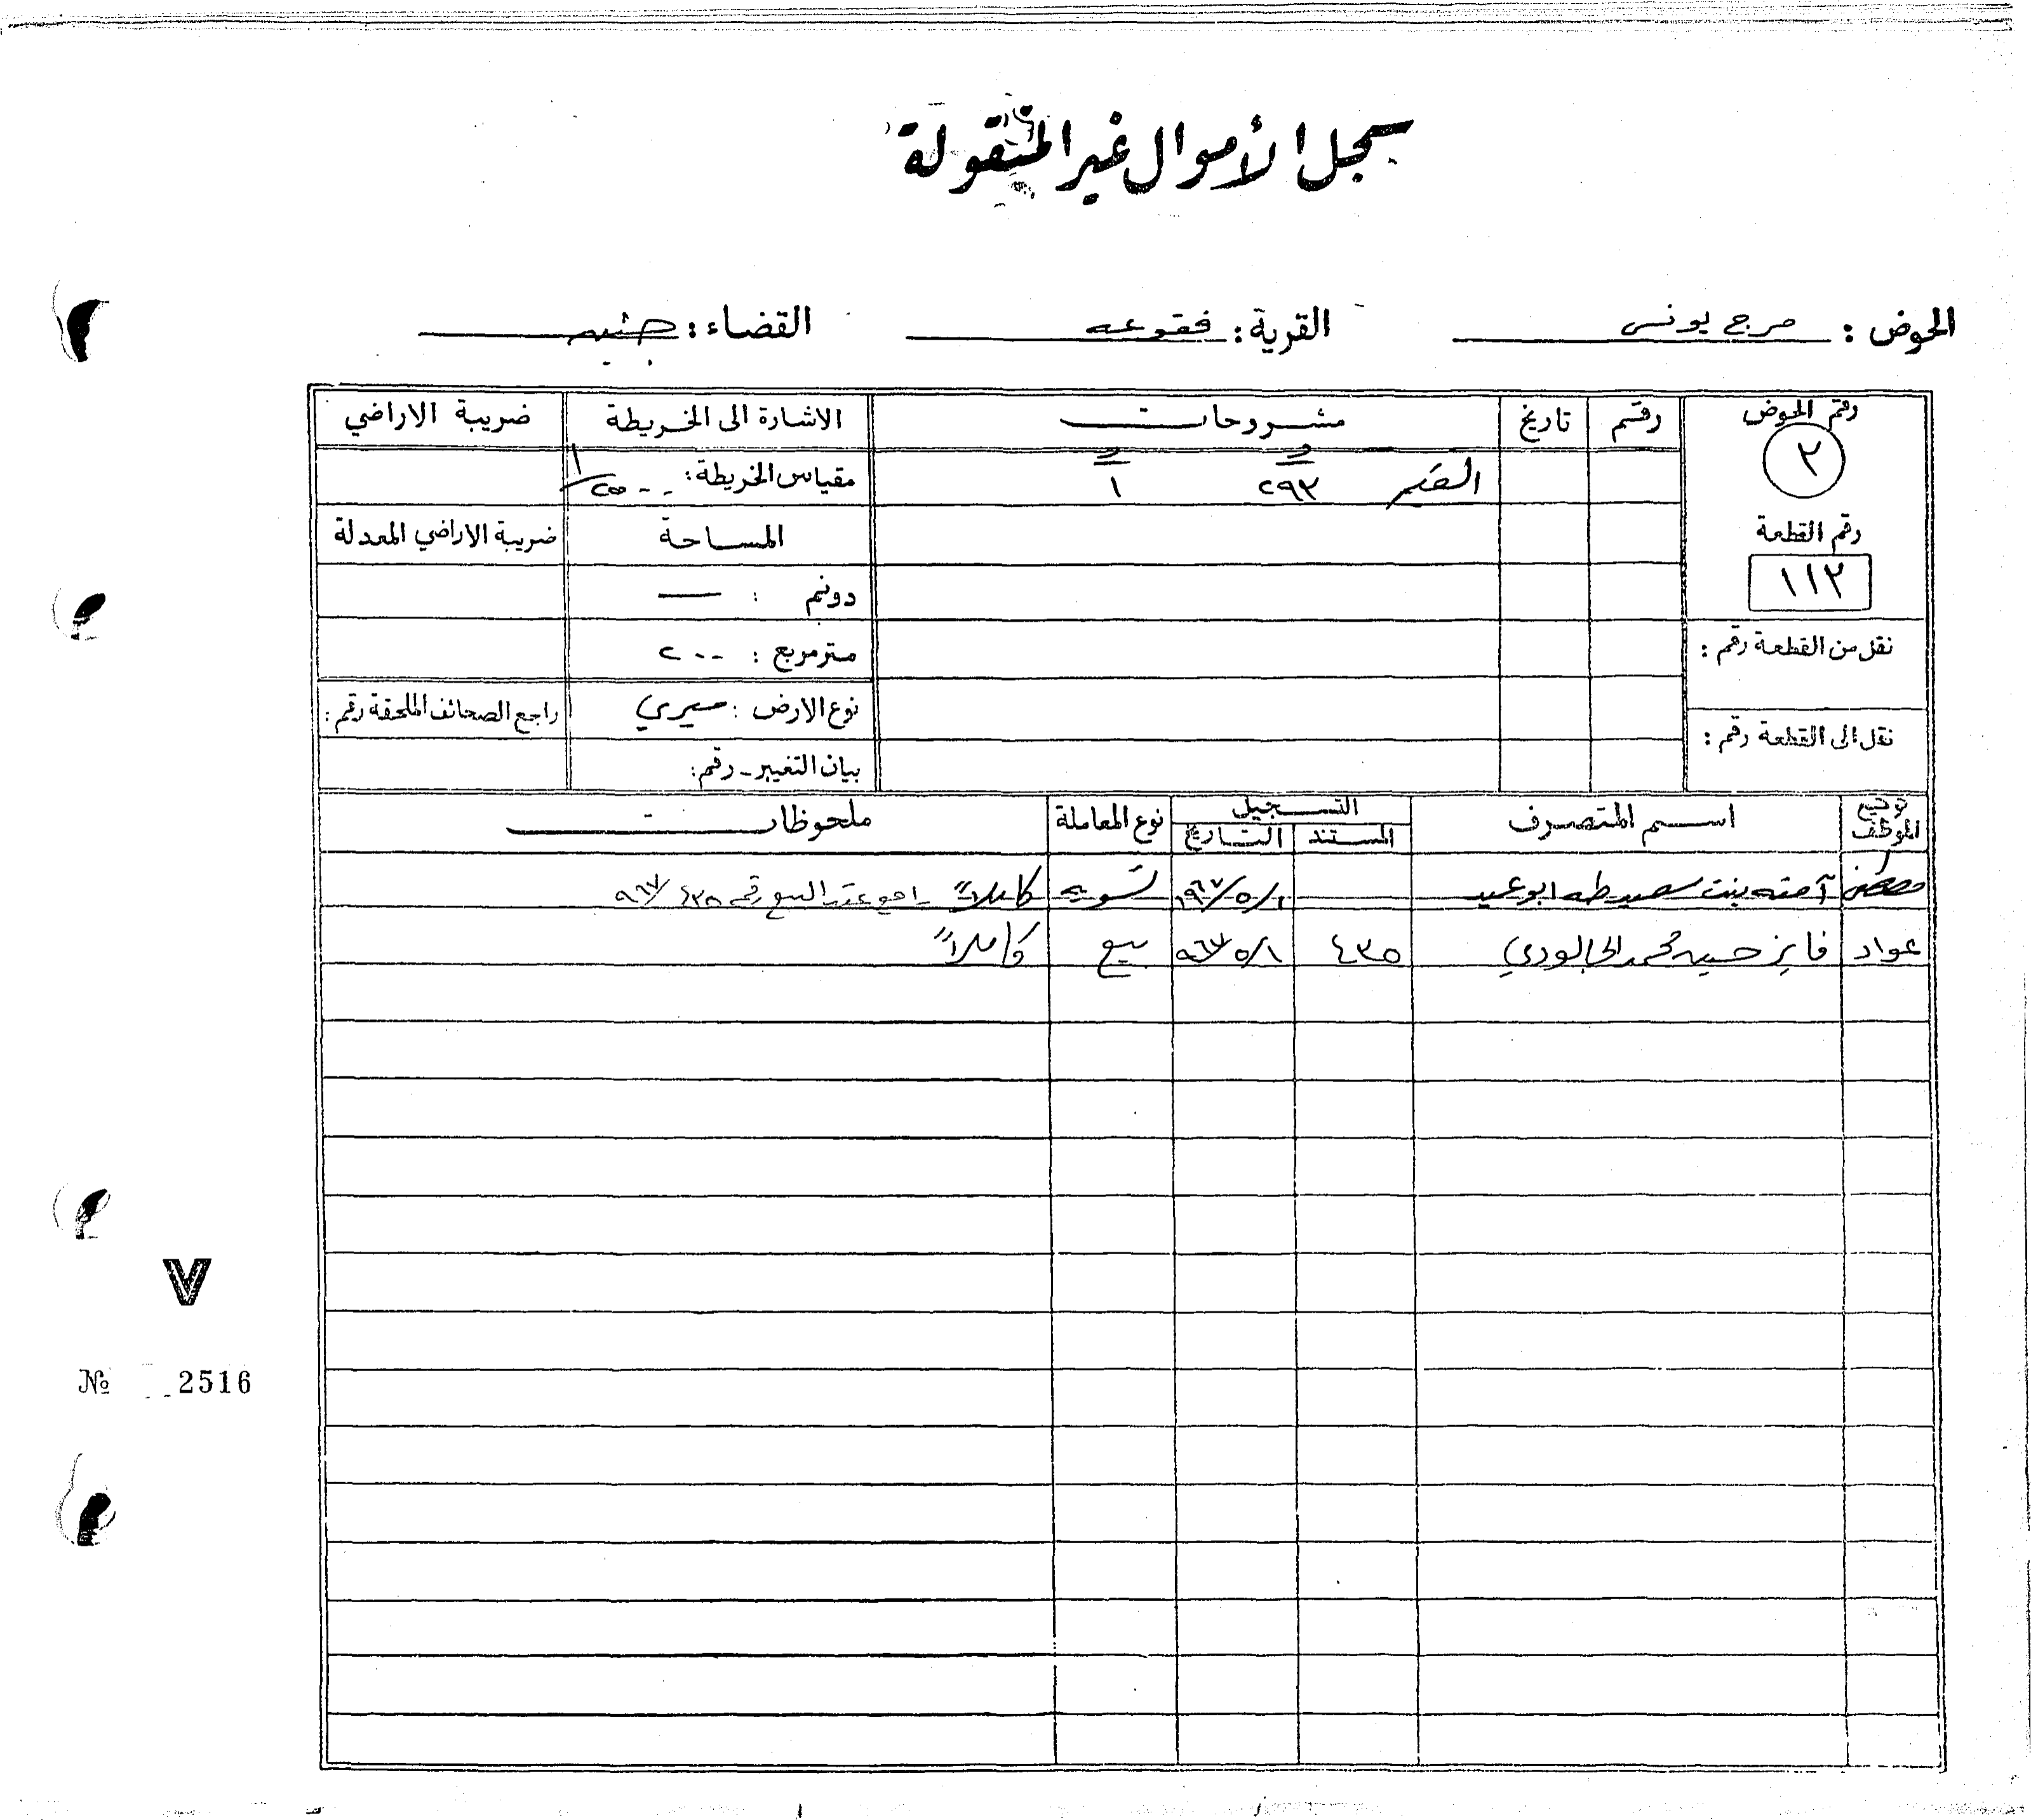 سجل الأموال غير المنقولة
الحوض : مرج يونس القرية : فقوعه القضاء : جنين
رقم الحوض رقم تاريخ مشروحات الاشارة الى الخريطة ضريبة الاراضي
٢
القيم ٢٩٣ ١ مقياس الخريطة : ١/٢٥٠٠
رقم القطعة المساحة ضريبة الاراضي المعدلة
١١٢ دونم : —
نقل من القطعة رقم : متر مربع : ٢٠٠
نوع الارض : ميري راجع الصحائف الملحقة رقم :
نقل الى القطعة رقم :
بيان التغيير - رقم :
توقيع الموظف اسم المتصرف التسجيل نوع المعاملة ملحوظات
المستند التاريخ
مصطفى آمنه بنت سعيد طه ابو عبيد ١/٥/٩٦٧ تسويه كاملاً راجع عقد البيع رقم ٤٣٥/٩٦٧
عواد فايز حسين محمد الجالودي ٤٣٥ ١/٥/٩٦٧ بيع كاملاً
V
№ 2516